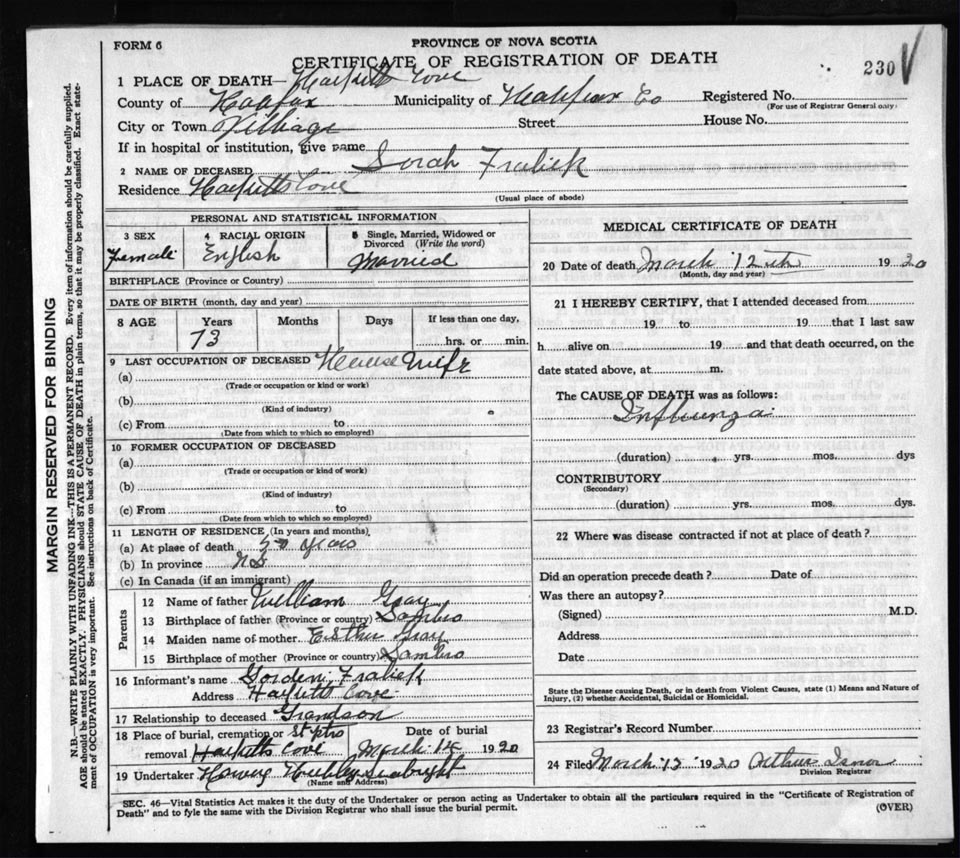 FORM 6
PROVINCE OF NOVA SCOTIA
CERTIFICATE OF REGISTRATION OF DEATH
230
1 PLACE OF DEATH— Cove
County of Halifax Municipality of Halifax Co Registered No.
(For use of Registrar General only)
City or Town Village Street House No.
If in hospital or institution, give name
2 NAME OF DECEASED Sarah Fralick
Residence Cove
(Usual place of abode)
PERSONAL AND STATISTICAL INFORMATION
3 SEX Female
4 RACIAL ORIGIN English
5 Single, Married, Widowed or Divorced (Write the word) Married
BIRTHPLACE (Province or Country)
DATE OF BIRTH (month, day and year)
8 AGE Years 73 Months Days If less than one day, hrs. or min.
9 LAST OCCUPATION OF DECEASED House Wife
(a)
(Trade or occupation or kind of work)
(b)
(Kind of industry)
(c) From to
(Date from which to which so employed)
10 FORMER OCCUPATION OF DECEASED
(a)
(Trade or occupation or kind of work)
(b)
(Kind of industry)
(c) From to
(Date from which to which so employed)
11 LENGTH OF RESIDENCE (In years and months)
(a) At place of death years
(b) In province N.S.
(c) In Canada (if an immigrant)
Parents
12 Name of father William Gray
13 Birthplace of father (Province or country) Sambro
14 Maiden name of mother Esther Gray
15 Birthplace of mother (Province or country) Sambro
16 Informant's name Gorden Fralick
Address Cove
17 Relationship to deceased Grandson
18 Place of burial, cremation or removal Cove
Date of burial March 14 1920
19 Undertaker Hubley Seabright
(Name and Address)
MEDICAL CERTIFICATE OF DEATH
20 Date of death March 12th 1920
(Month, day and year)
21 I HEREBY CERTIFY, that I attended deceased from
19 to 19 that I last saw
h alive on 19 and that death occurred, on the
date stated above, at m.
The CAUSE OF DEATH was as follows:
Influenza
(duration) yrs. mos. dys
CONTRIBUTORY
(Secondary)
(duration) yrs. mos. dys.
22 Where was disease contracted if not at place of death?
Did an operation precede death? Date of
Was there an autopsy?
(Signed) M.D.
Address
Date
State the Disease causing Death, or in death from Violent Causes, state (1) Means and Nature of
Injury, (2) whether Accidental, Suicidal or Homicidal.
23 Registrar's Record Number
24 Filed March 12 1920 Arthur Isnor
Division Registrar
SEC. 46—Vital Statistics Act makes it the duty of the Undertaker or person acting as Undertaker to obtain all the particulars required in the "Certificate of Registration of
Death" and to fyle the same with the Division Registrar who shall issue the burial permit.
(OVER)
MARGIN RESERVED FOR BINDING
N.B.—WRITE PLAINLY WITH UNFADING INK—THIS IS A PERMANENT RECORD. Every item of information should be carefully supplied.
AGE should be stated EXACTLY. PHYSICIANS should STATE CAUSE OF DEATH in plain terms, so that it may be properly classified. Exact state-
ment of OCCUPATION is very important. See instructions on back of Certificate.